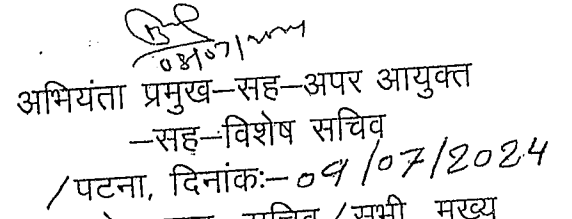 अभियंता प्रमुख–सह–अपर आयुक्त
–सह–विशेष सचिव
/पटना, दिनांकः– 09/07/2024
सचिव / सभी मुख्य